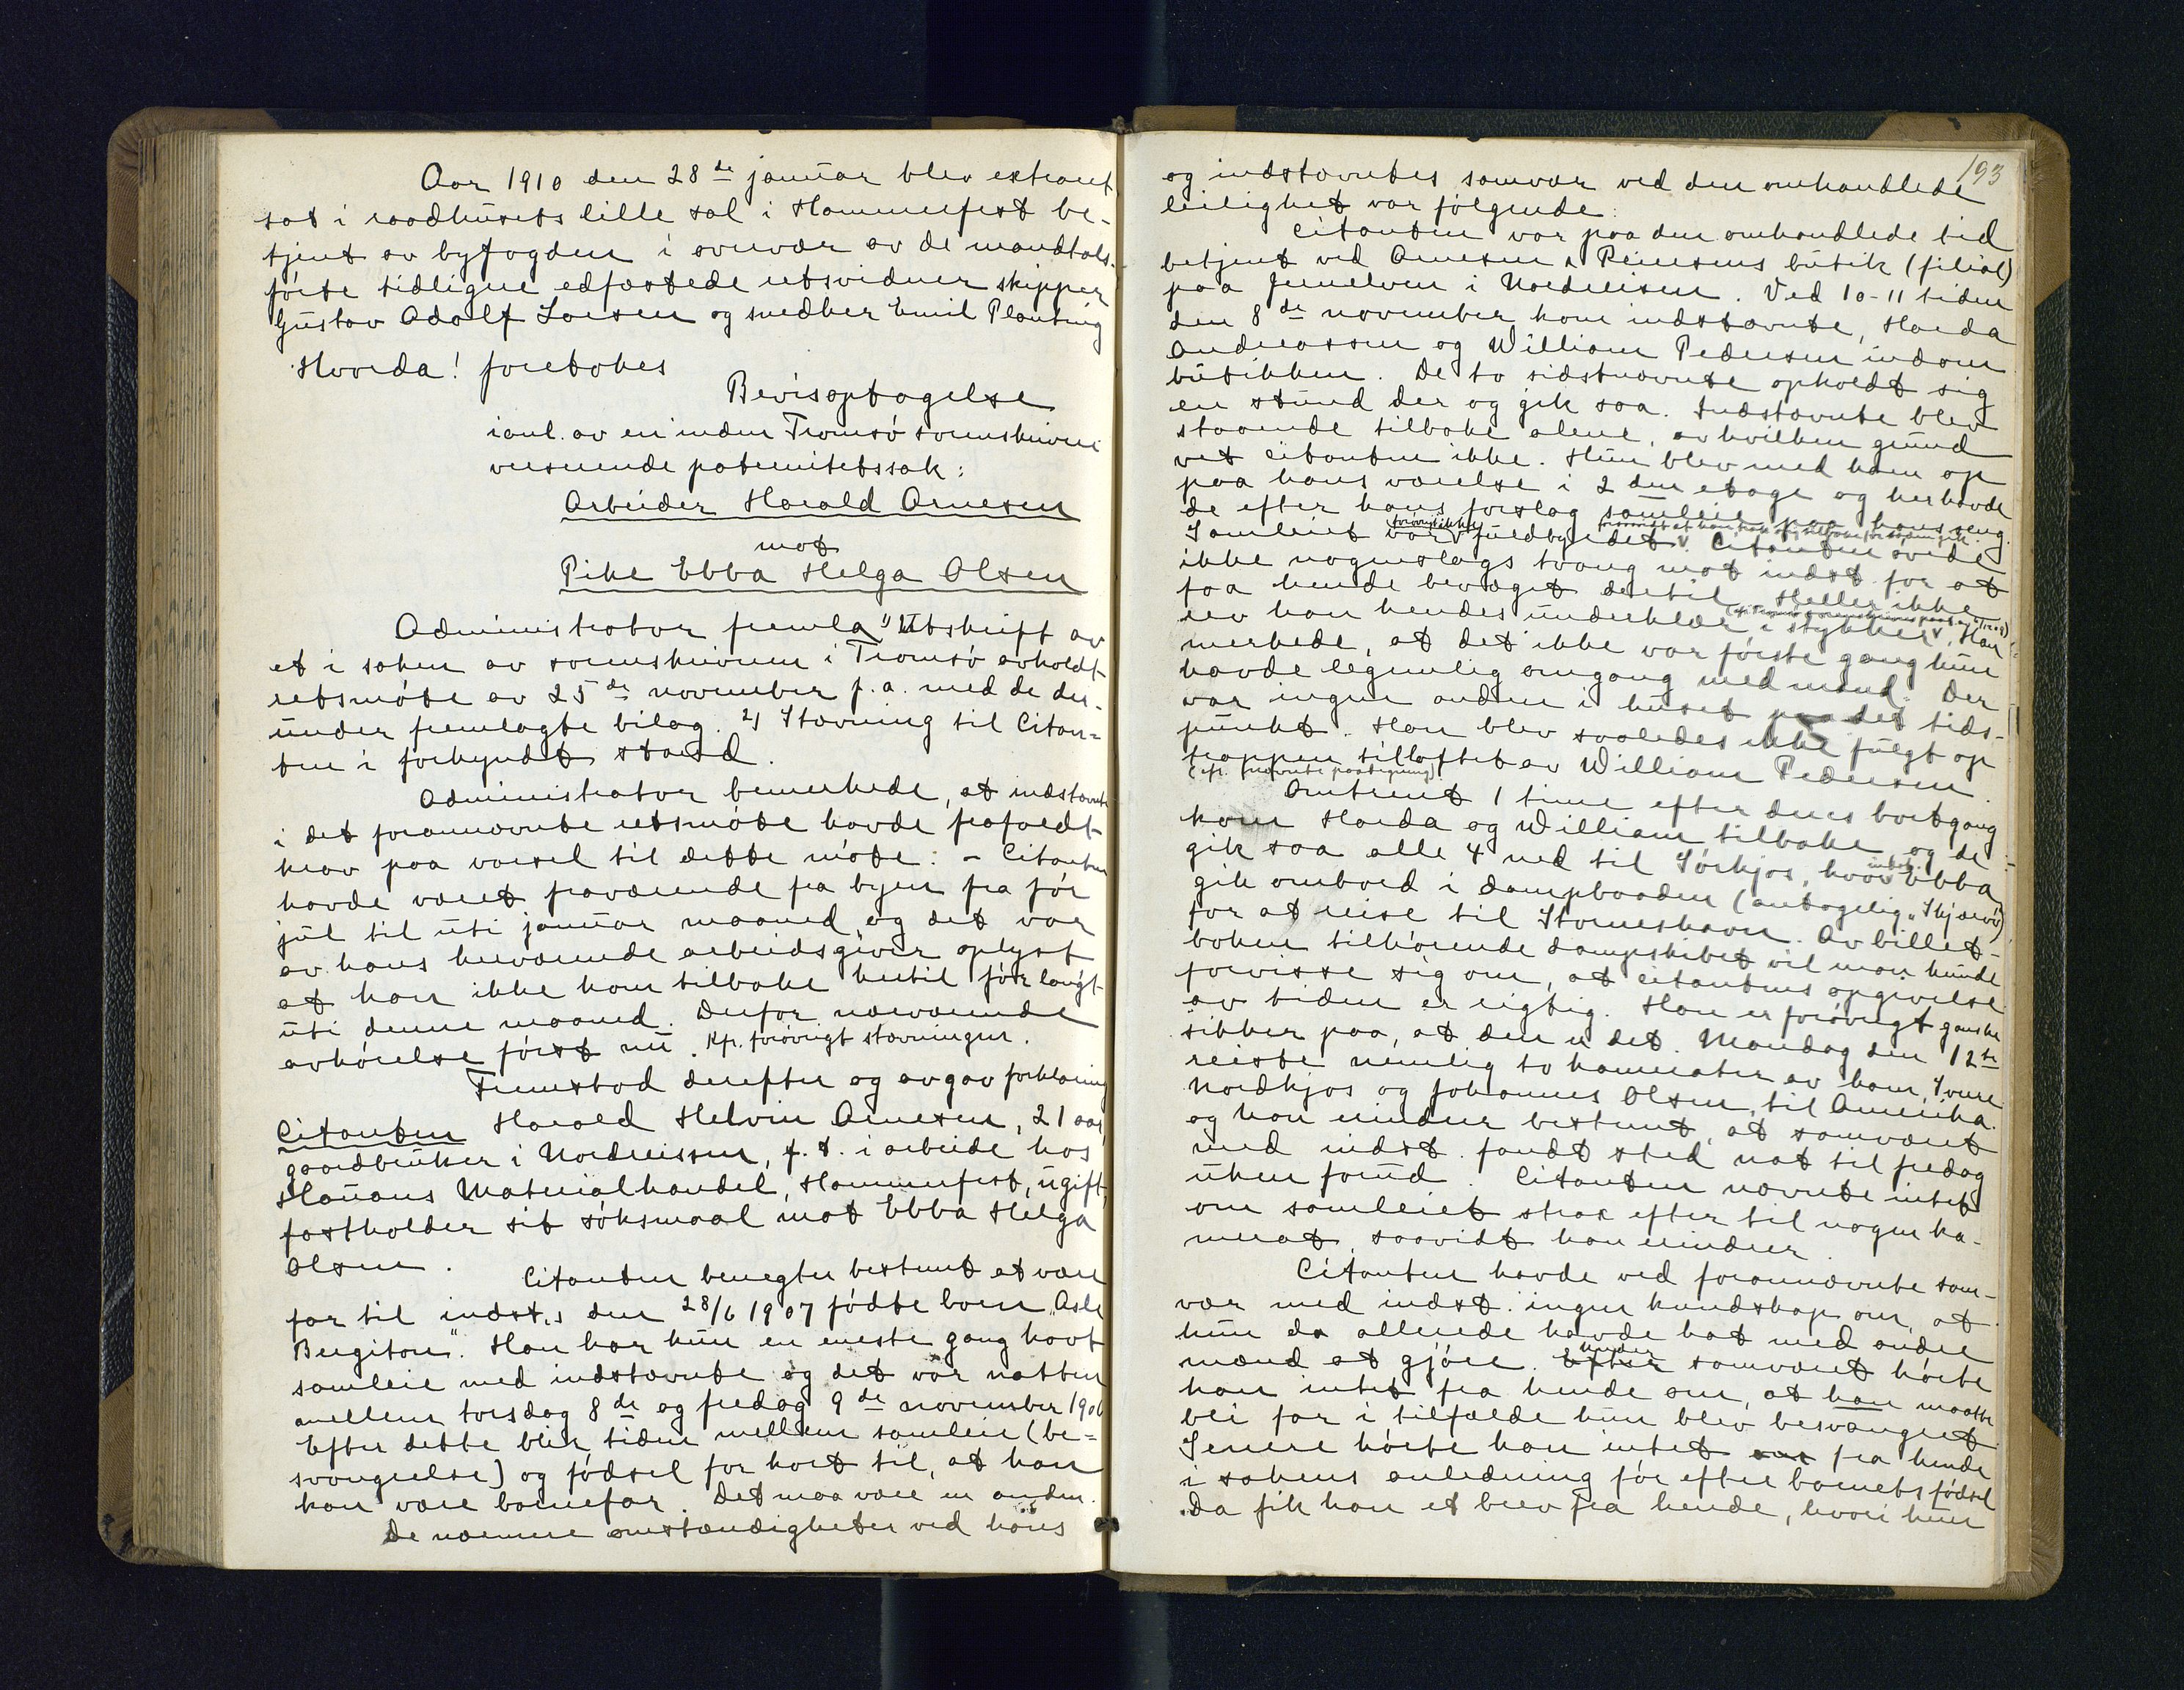 Aar 1910 den 28de januar blev extraret
sat i raadhusets lille sal i Hammerfest be-
tjent av byfogden i overvær av de mandtals-
førte tidligere edfæstede retsvidner skipper
Gustav Adolf Larsen og snedker Emil Plauting
Hvorda! foretokes
Bevisoptagelse
i anl. av en inden Tromsø sorenskriveri
verserende paternitetssak:
Arbeider Harald Arnesen
mot
Pike Ebba Helga Olsen
Administrator fremla 1) Utskrift av
et i saken av sorenskriveren i Tromsø avholdt
retsmøte av 25de november f.a. med de der-
under fremlagte bilag. 2) Stævning til Citan-
ten i forkyndt stand.
Administrator bemerkede, at indstævnte
i det forannævnte retsmøte havde frafaldt
krav paa varsel til dette møte: - Citanten
havde været fraværende fra byen fra før
jul til uti januar maaned og det var
av hans herværende arbeidsgiver oplyst
at han ikke kom tilbake hertil før langt
uti denne maaned. Derfor nærværende
avhørelse først nu. Kfr. forøvrigt stævningen.
Fremstod derefter og avgav forklaring
Citanten Harald Helvin Arnesen, 21 aar,
gaardbruker i Nordreissen, f. t. i arbeide hos
Hauans Materialhandel, Hammerfest, ugift,
fastholder sit søksmaal mot Ebba Helga
Olsen.
Citanten benegter bestemt at være
far til indst.s den 28/6 1907 fødte barn "Asle
Bergiton". Han har kun en eneste gang havt
samleie med indstævnte og det var natten
mellem torsdag 8de og fredag 9de november 1906
Efter dette blir tiden mellem samleie (be-
svangrelse) og fødsel for kort til, at han
kan være barnefar. Det maa være en anden.
De nærmere omstændigheter ved hans
193
og indstævntes samvær ved den omhandlede
leilighet var følgende:
Citanten var paa den omhandlede tid
betjent ved Arnesen & Reiersens butik (filial)
paa Jernelven i Nordreisen. Ved 10-11 tiden
den 8de november kom indstævnte, Harda
Andreassen og William Pedersen indom
butikken. De to sidstnævnte opholdt sig
en stund der og gik saa. Indstævnte blev
staaende tilbake alene, av hvilken grund
vet citanten ikke. Hun blev med ham op
paa hans værelse i 2den etage og her havde
de efter hans forslag samleie paa hans seng.
forøvrigt ikke
Samleiet var fuldbyrdet. Citanten øvede
ikke nogenslags tvang mot indst. for at
faa hende bevæget dertil. Heller ikke
rev han hendes underklær i stykker. Han
merkede, at det ikke var første gang hun
havde legemlig omgang med mand. Der
var ingen anden i huset paa det tids-
punkt. Han blev saaledes ikke fulgt op
trappen til loftet av William Pedersen.
(cfr. frnævnte paategning)
Omtrent 1 time efter deres bortgang
kom Harda og William tilbake og de
gik saa alle 4 ned til Sørkjos, hvor Ebba
gik ombord i dampbaaden (antagelig "Skjærvø)
for at reise til Storneshavn. Av billet-
boken tilhørende dampskibet vil man kunde
forvisse sig om, at citantens opgivelse
av tiden er rigtig. Han er forøvrigt ganske
sikker paa, at den er det. Mandag den 12te
reiste nemlig to kamerater av ham, Sverre
Nordkjos og Johannes Olsen, til Amerika.
og han minder bestemt, at samværet
med indst. fandt sted nat til fredag
uken forud. Citanten nævnte intet
om samleiet strax efter til nogen ka-
merat, saavidt han minder.
Citanten havde ved forannævnte sam-
vær med indst. ingen kundskap om, at
hun da allerede havde hat med andre
under
mænd at gjøre. Efter samværet hørte
han intet fra hende om, at han maatte
bli far i tilfælde hun blev besvangret
Senere hørte han intet fra hende
i sakens anledning før efter barnets fødsel
Da fik han et brev fra hende, hvori hun